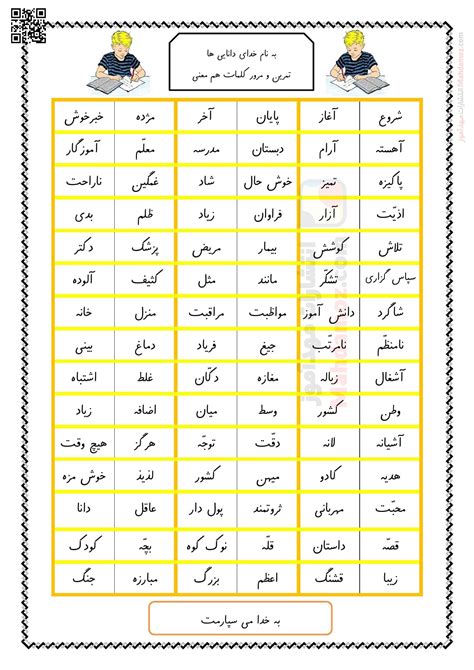 به نام خدای دانایی ها
تمرین و مرور کلمات هم معنی
شروع آغاز پایان آخر مژده خبرخوش
آهسته آرام دبستان مدرسه معلّم آموزگار
پاکیزه تمیز خوش حال شاد غمگین ناراحت
اذیّت آزار فراوان زیاد ظلم بدی
تلاش کوشش بیمار مریض پزشک دکتر
سپاس گزاری تشکّر مانند مثل کثیف آلوده
شاگرد دانش آموز مواظبت مراقبت منزل خانه
نامنظّم نامرتّب جیغ فریاد دماغ بینی
آشغال زباله مغازه دکّان غلط اشتباه
وطن کشور وسط میان اضافه زیاد
آشیانه لانه دقّت توجّه هرگز هیچ وقت
هدیه کادو میهن کشور لذیذ خوش مزه
محبّت مهربانی ثروتمند پول دار عاقل دانا
قصّه داستان قلّه نوک کوه بچّه کودک
زیبا قشنگ اعظم بزرگ مبارزه جنگ
به خدا می سپارمت